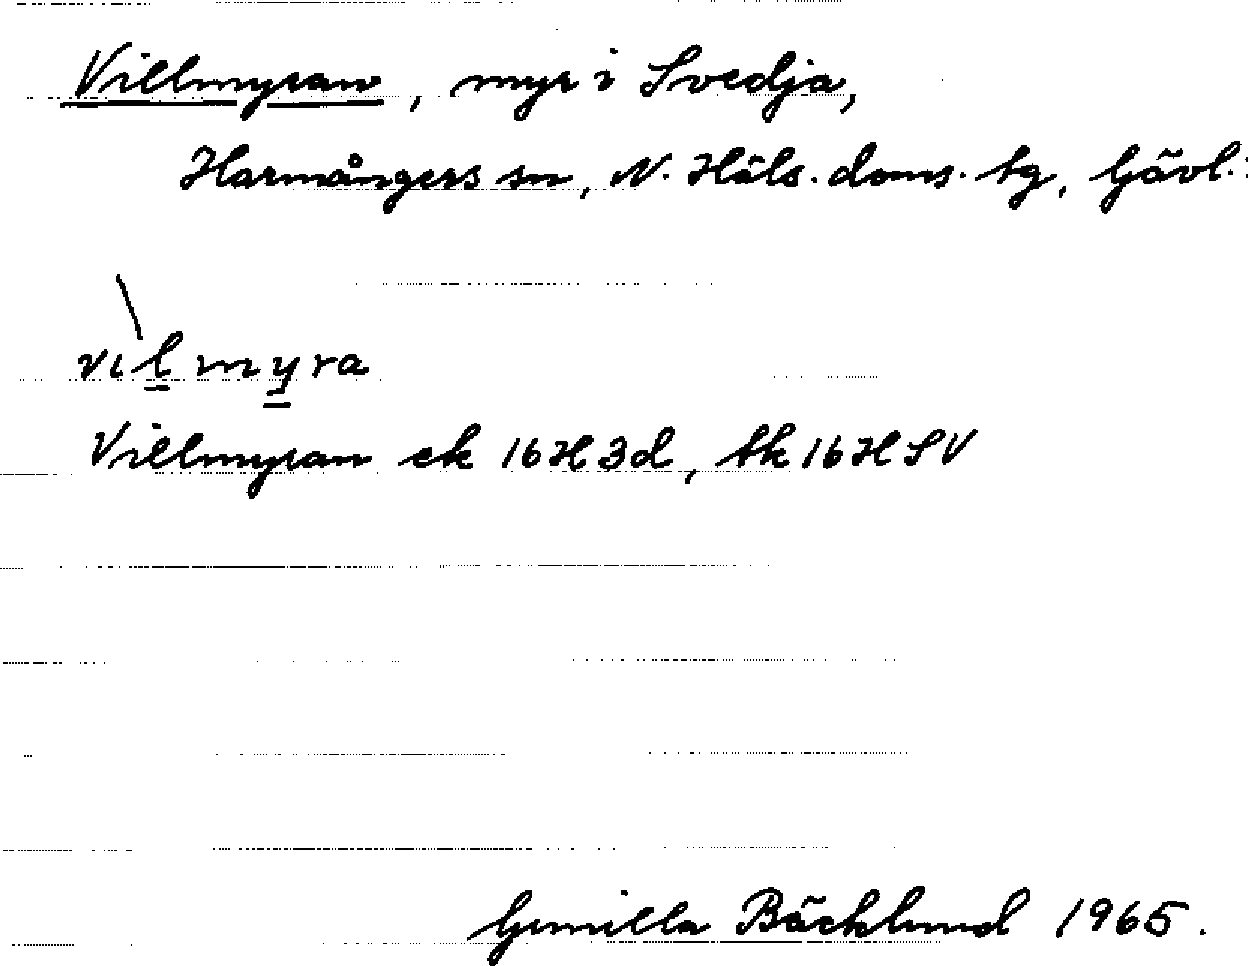 Villmyran, myr i Svedja,
Harmångers sn, N. Häls. doms. tg, Gävl.
vìlmyra
Villmyran ek 16H3d, tk 16HSV
Gunilla Bäcklund 1965.